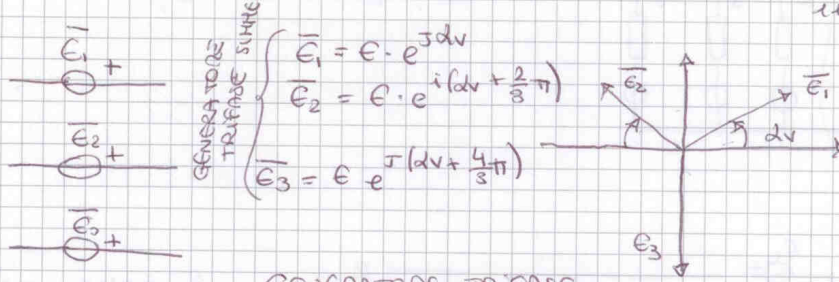 E̅₁ +
E̅₂ +
E̅₃ +
GENERATORE
TRIFASE SIMME
E̅₁ = E · e^{Jαv}
E̅₂ = E · e^{i(αv + 2/3 π)}
E̅₃ = E e^{J(αv + 4/3 π)}
E̅₂
E̅₁
αv
E₃